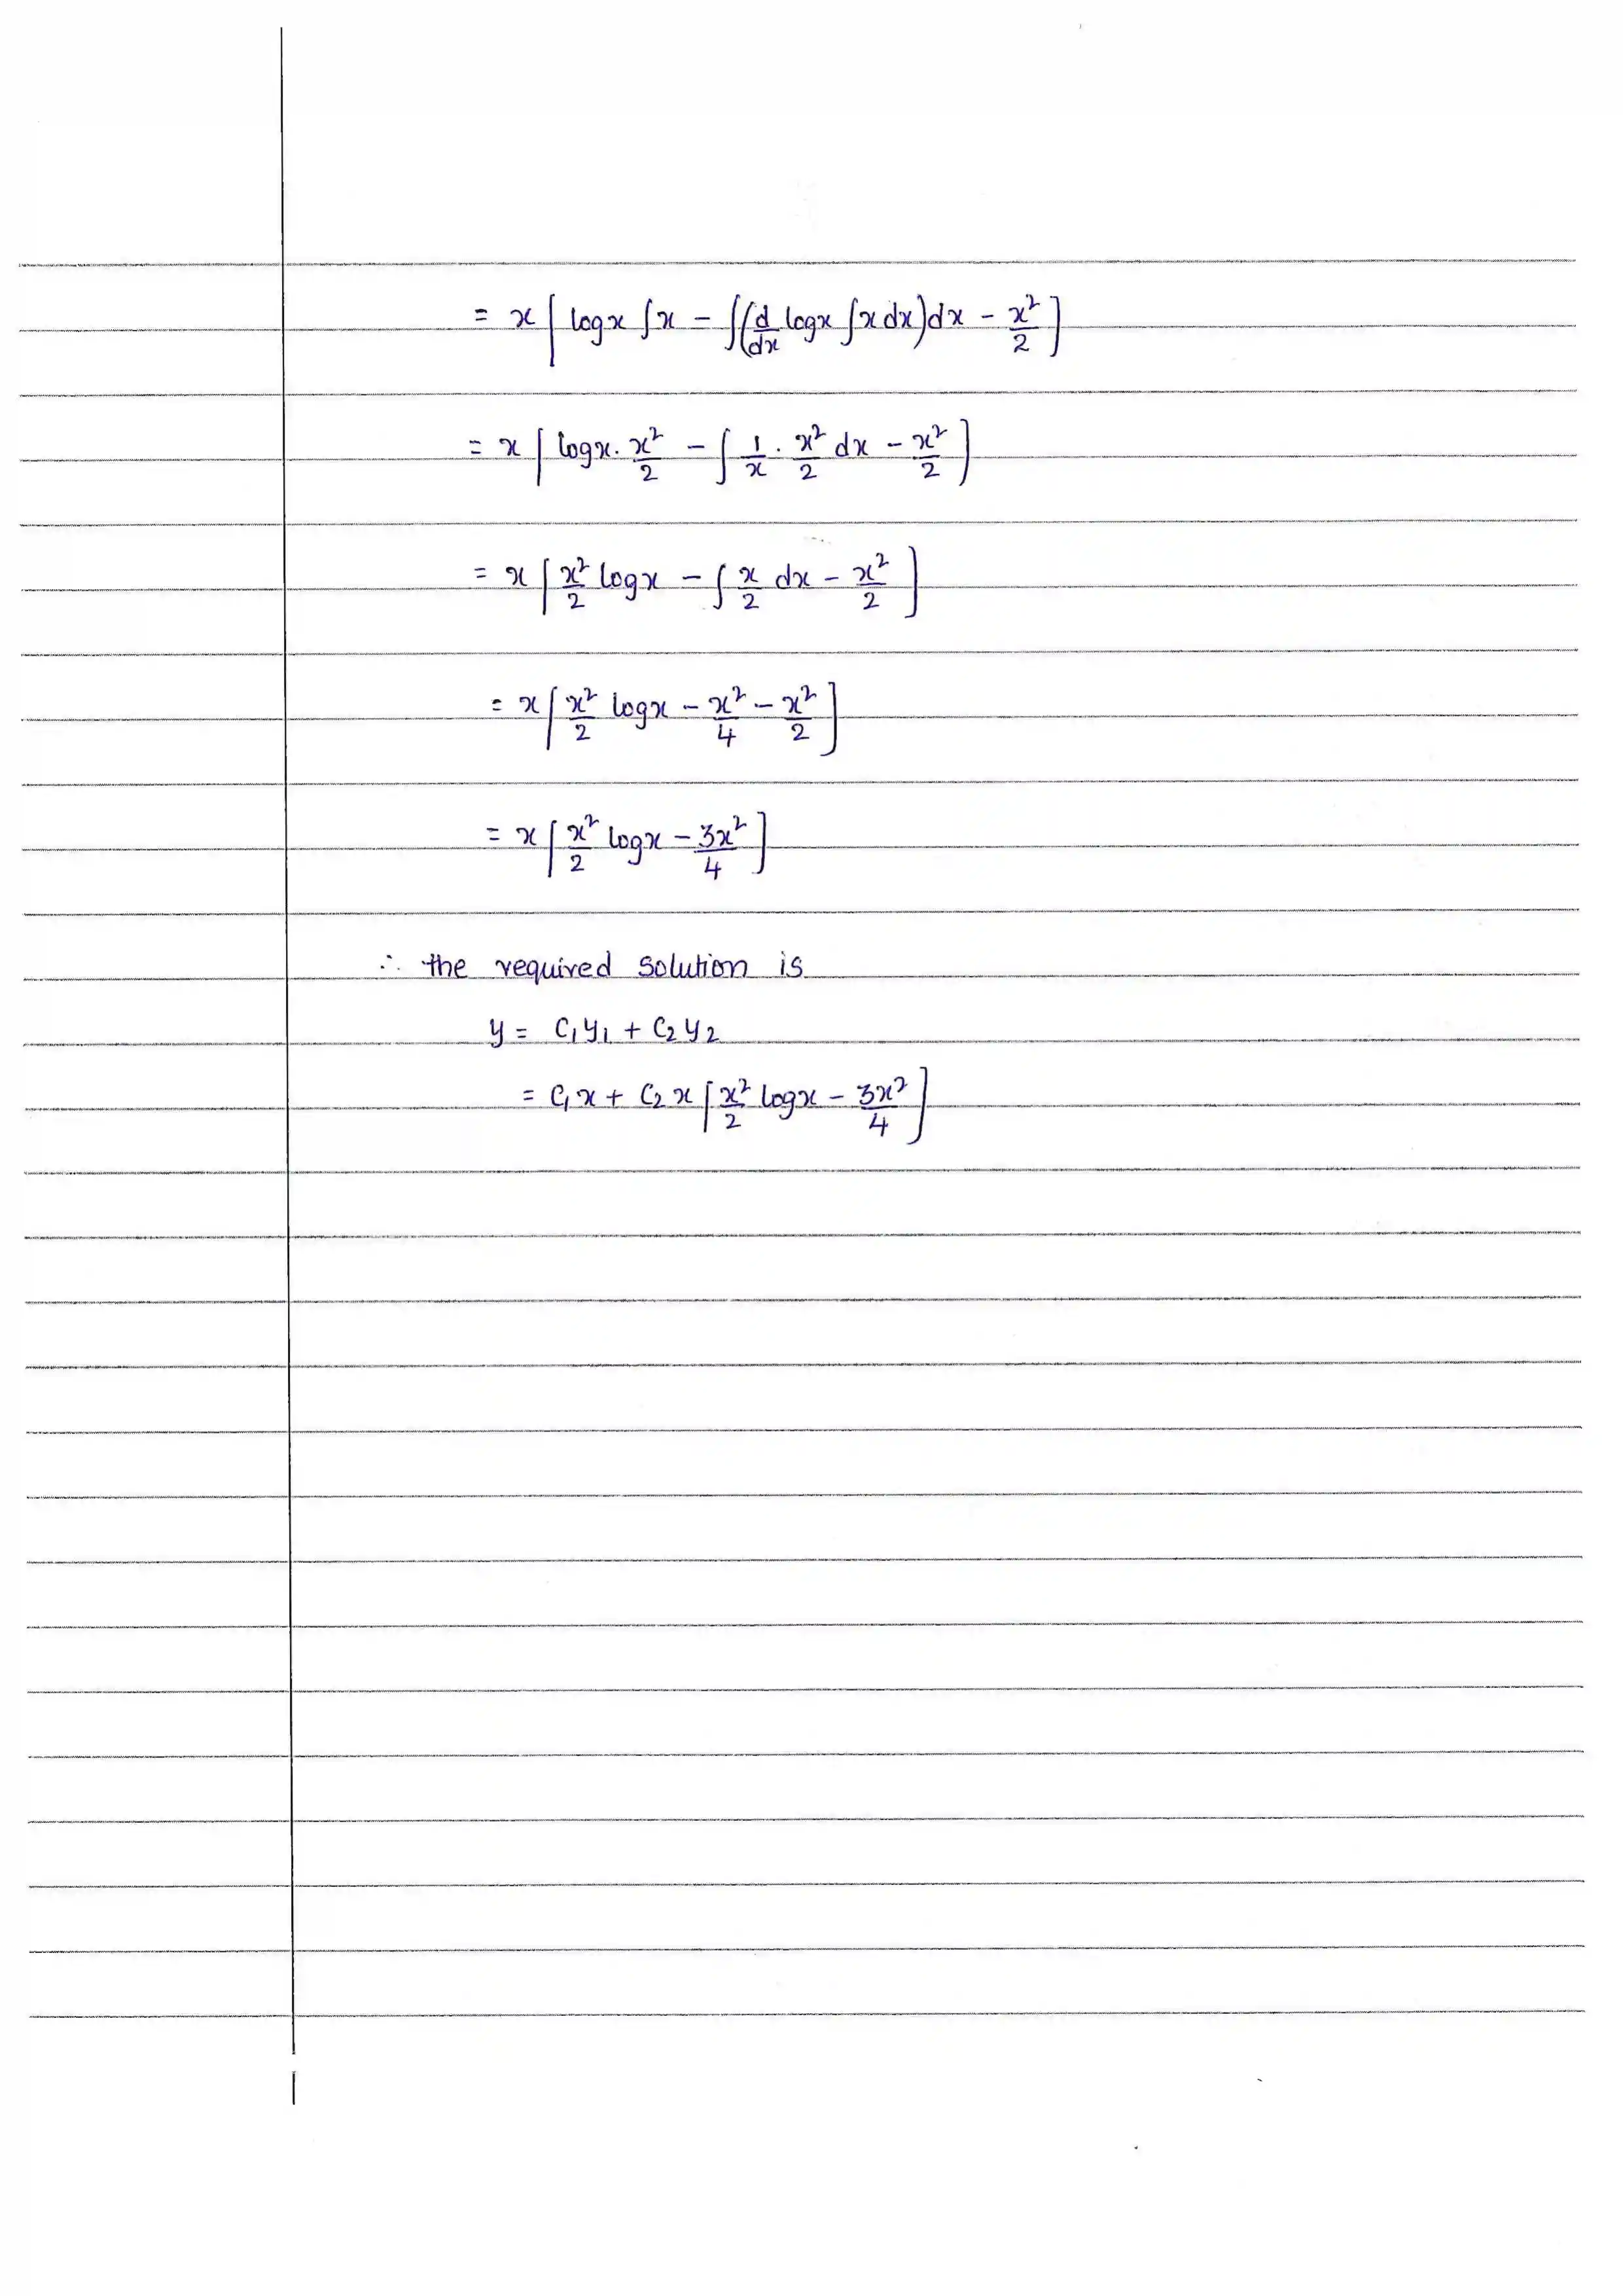 = x [ log x ∫x − ∫(d/dx log x ∫x dx) dx − x²/2 ]
= x [ log x · x²/2 − ∫ 1/x · x²/2 dx − x²/2 ]
= x [ x²/2 log x − ∫ x/2 dx − x²/2 ]
= x [ x²/2 log x − x²/4 − x²/2 ]
= x [ x²/2 log x − 3x²/4 ]
∴ the required solution is
y = C₁y₁ + C₂y₂
= C₁x + C₂x [ x²/2 log x − 3x²/4 ]